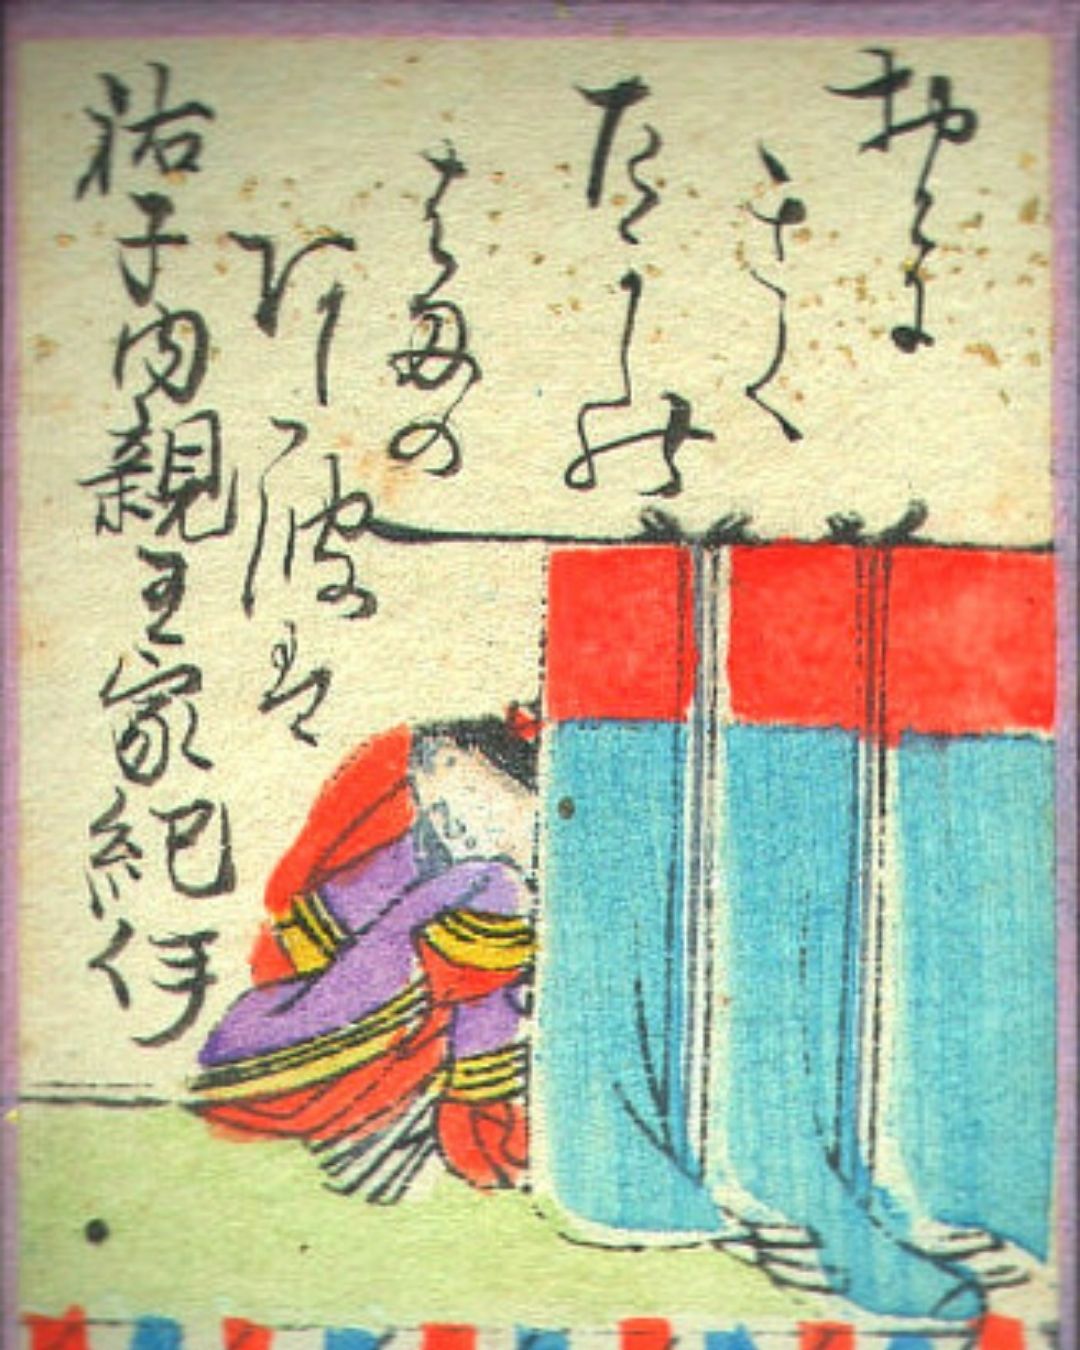 おとに
きく
たかしの
はまの
阿た波は
祐子内親王家紀伊